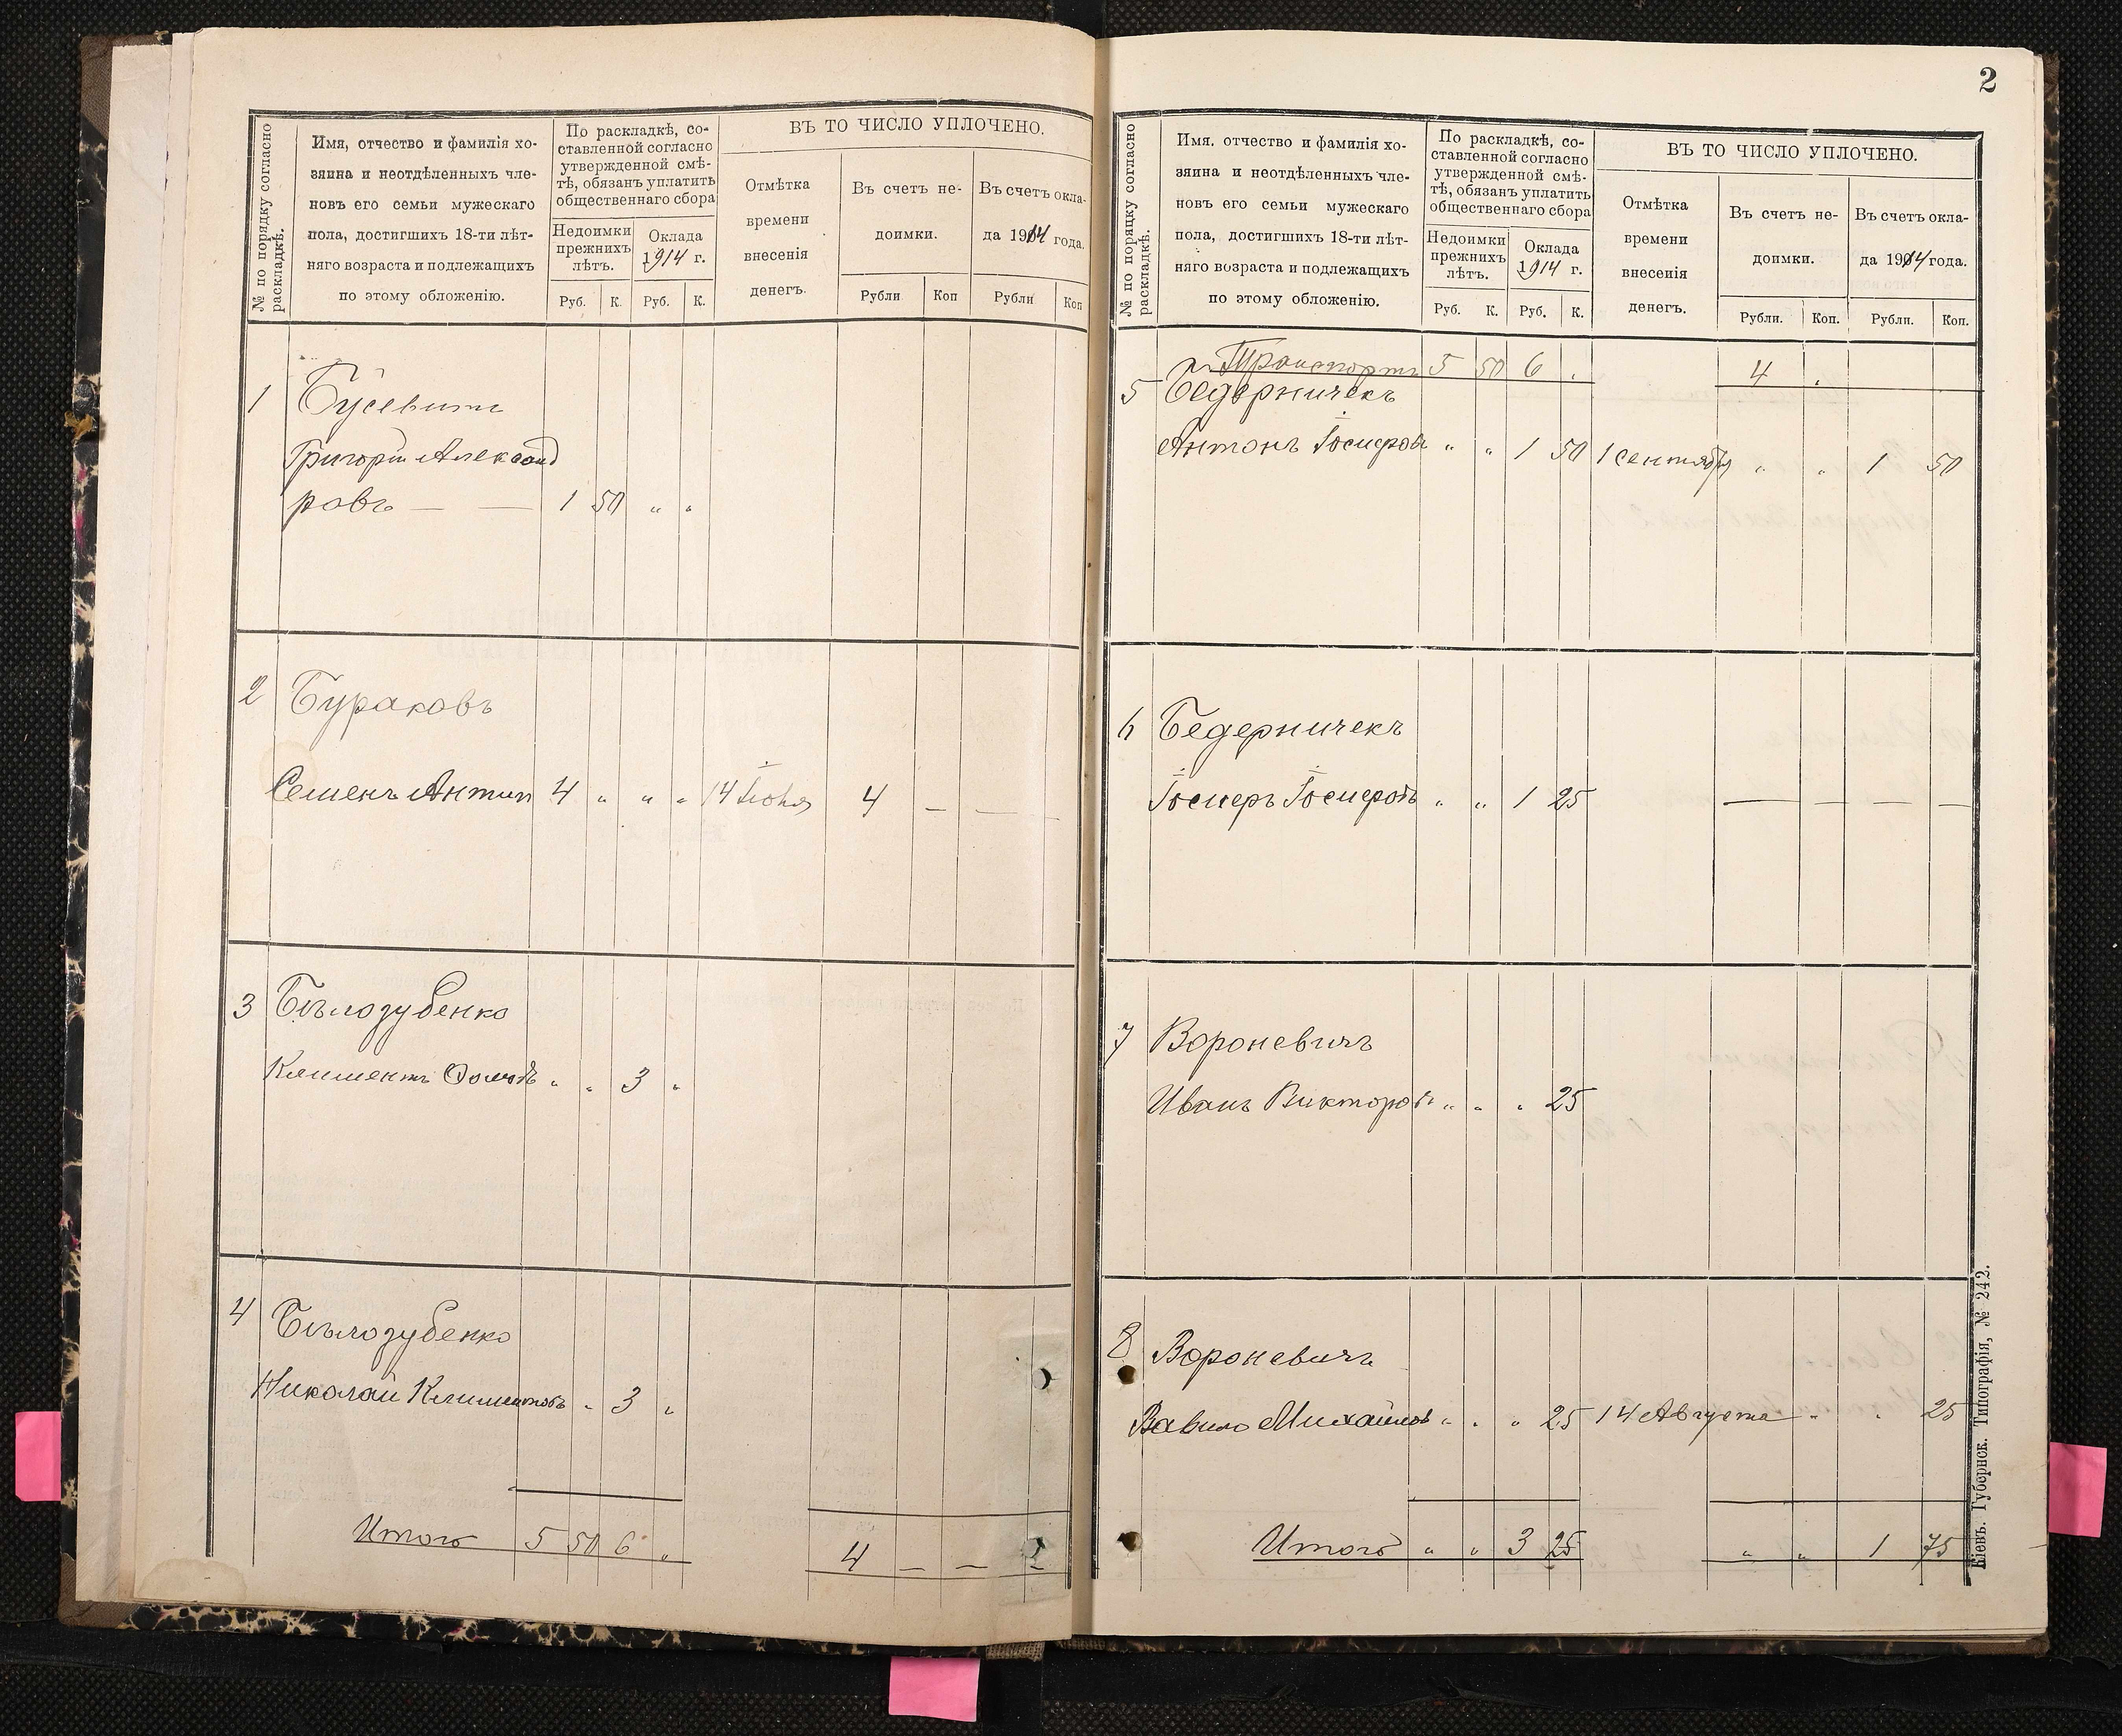 № по порядку согласно
раскладкѣ.
Имя, отчество и фамилія хо-
зяина и неотдѣленныхъ чле-
новъ его семьи мужескаго
пола, достигшихъ 18-ти лѣт-
няго возраста и подлежащихъ
по этому обложенію.
По раскладкѣ, со-
ставленной согласно
утвержденной смѣ-
тѣ, обязанъ уплатить
общественнаго сбора
Недоимки
прежнихъ
лѣтъ.
Оклада
1914 г.
Руб. К. Руб. К.
ВЪ ТО ЧИСЛО УПЛОЧЕНО.
Отмѣтка
времени
внесенія
денегъ.
Въ счетъ не-
доимки.
Въ счетъ окла-
да 1914 года.
Рубли Коп Рубли Коп
1
Григорій Александ
ровъ — — 1 50 " "
2 Бураковъ
Семенъ Антип 4 " " " 14 Іюня 4 — — —
3 Бѣлозубенко
Климентъ " " 3 "
4 Бѣлозубенко
Николай Климентовъ " 3 "
Итого 5 50 6 "
4 — — —
2
№ по порядку согласно
раскладкѣ.
Имя, отчество и фамилія хо-
зяина и неотдѣленныхъ чле-
новъ его семьи мужескаго
пола, достигшихъ 18-ти лѣт-
няго возраста и подлежащихъ
по этому обложенію.
По раскладкѣ, со-
ставленной согласно
утвержденной смѣ-
тѣ, обязанъ уплатить
общественнаго сбора
Недоимки
прежнихъ
лѣтъ.
Оклада
1914 г.
Руб. К. Руб. К.
ВЪ ТО ЧИСЛО УПЛОЧЕНО.
Отмѣтка
времени
внесенія
денегъ.
Въ счетъ не-
доимки.
Въ счетъ окла-
да 1914 года.
Рубли. Коп. Рубли. Коп.
Транспортъ 5 50 6 " 4 "
5 Бедерничекъ
Антонъ Іосифовъ " " 1 50 1 сентября " " 1 50
6 Бедерничекъ
Іосифъ Іосифовъ " " 1 25 — — — —
7 Вороневичъ
Иванъ Викторовъ " " " 25
8 Вороневичъ
Вавило Михайловъ " " " 25 14 Августа " " 25
Итого " " 3 25 " " 1 75
Кіевъ. Губернск. Типографія, № 242.